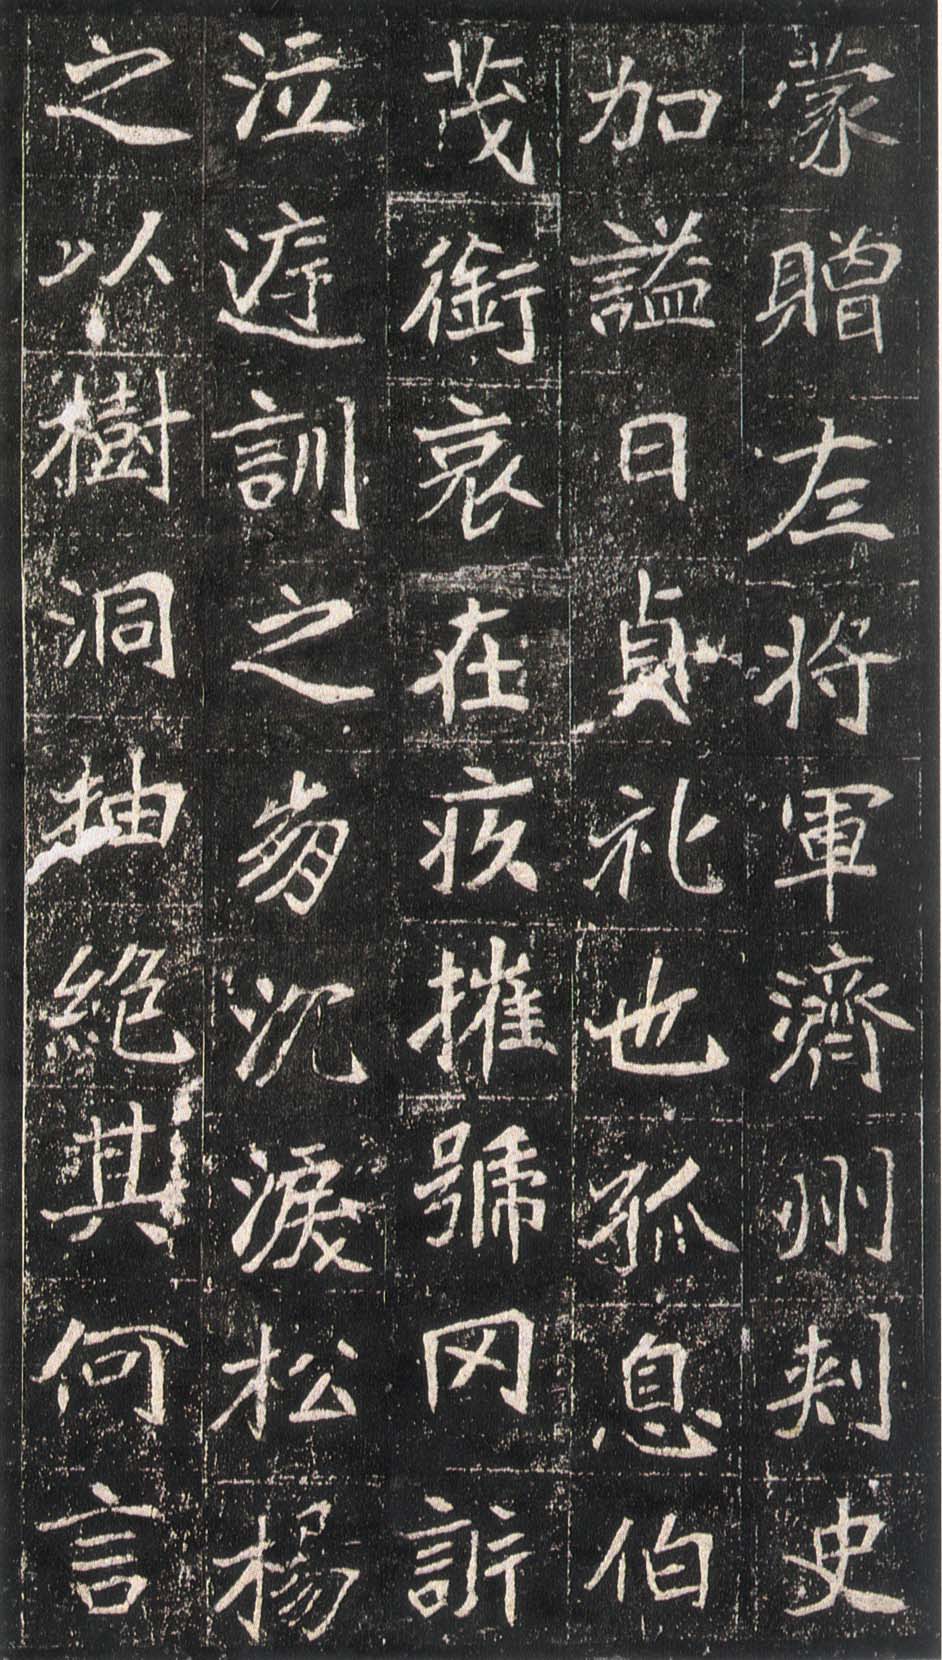 蒙贈左将軍濟州刾史
加謚曰貞礼也孤息伯
茂銜哀在疚摧號罔訴
泣遵訓之崩沉淚松楊
之以樹洞抽絶其何言